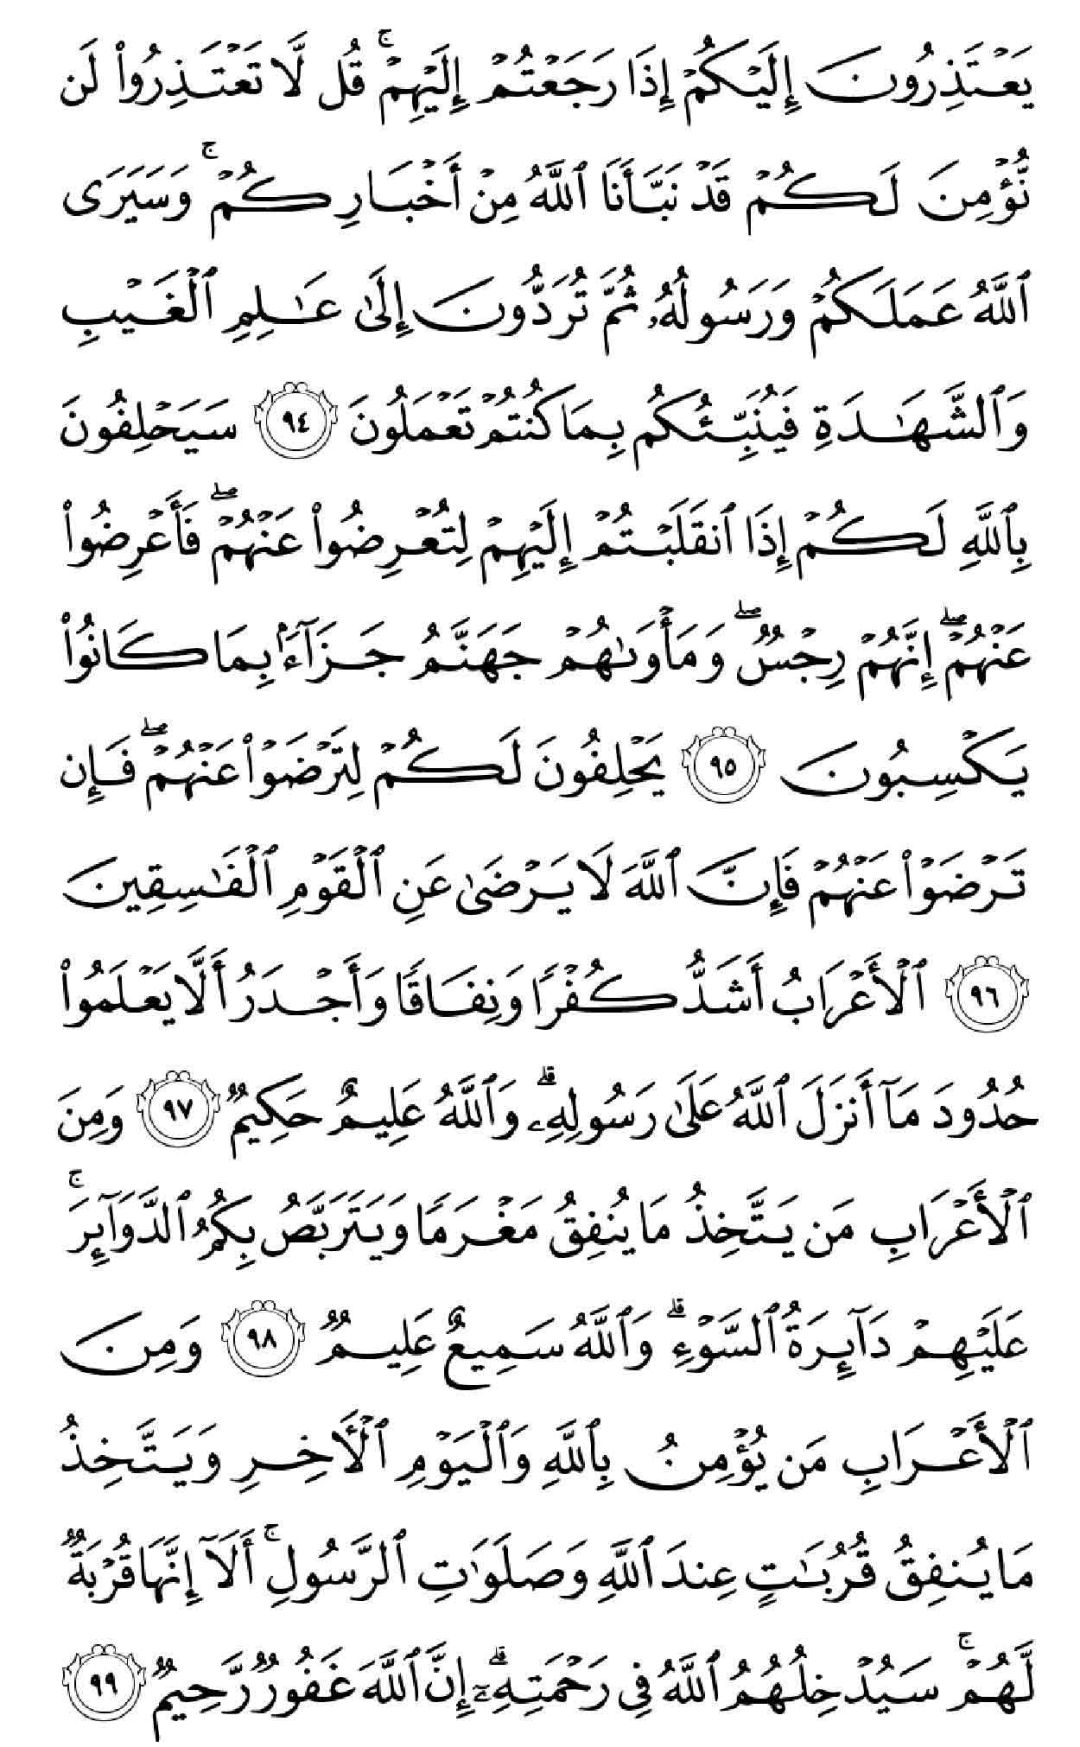 يَعْتَذِرُونَ إِلَيْكُمْ إِذَا رَجَعْتُمْ إِلَيْهِمْ ۚ قُل لَّا تَعْتَذِرُوا۟ لَن
نُّؤْمِنَ لَكُمْ قَدْ نَبَّأَنَا ٱللَّهُ مِنْ أَخْبَارِكُمْ ۚ وَسَيَرَى
ٱللَّهُ عَمَلَكُمْ وَرَسُولُهُۥ ثُمَّ تُرَدُّونَ إِلَىٰ عَـٰلِمِ ٱلْغَيْبِ
وَٱلشَّهَـٰدَةِ فَيُنَبِّئُكُم بِمَا كُنتُمْ تَعْمَلُونَ ۝٩٤ سَيَحْلِفُونَ
بِٱللَّهِ لَكُمْ إِذَا ٱنقَلَبْتُمْ إِلَيْهِمْ لِتُعْرِضُوا۟ عَنْهُمْ ۖ فَأَعْرِضُوا۟
عَنْهُمْ ۖ إِنَّهُمْ رِجْسٌ ۖ وَمَأْوَىٰهُمْ جَهَنَّمُ جَزَآءًۢ بِمَا كَانُوا۟
يَكْسِبُونَ ۝٩٥ يَحْلِفُونَ لَكُمْ لِتَرْضَوْا۟ عَنْهُمْ ۖ فَإِن
تَرْضَوْا۟ عَنْهُمْ فَإِنَّ ٱللَّهَ لَا يَرْضَىٰ عَنِ ٱلْقَوْمِ ٱلْفَـٰسِقِينَ
۝٩٦ ٱلْأَعْرَابُ أَشَدُّ كُفْرًا وَنِفَاقًا وَأَجْدَرُ أَلَّا يَعْلَمُوا۟
حُدُودَ مَآ أَنزَلَ ٱللَّهُ عَلَىٰ رَسُولِهِۦ ۗ وَٱللَّهُ عَلِيمٌ حَكِيمٌ ۝٩٧ وَمِنَ
ٱلْأَعْرَابِ مَن يَتَّخِذُ مَا يُنفِقُ مَغْرَمًا وَيَتَرَبَّصُ بِكُمُ ٱلدَّوَآئِرَ ۚ
عَلَيْهِمْ دَآئِرَةُ ٱلسَّوْءِ ۗ وَٱللَّهُ سَمِيعٌ عَلِيمٌ ۝٩٨ وَمِنَ
ٱلْأَعْرَابِ مَن يُؤْمِنُ بِٱللَّهِ وَٱلْيَوْمِ ٱلْـَٔاخِرِ وَيَتَّخِذُ
مَا يُنفِقُ قُرُبَـٰتٍ عِندَ ٱللَّهِ وَصَلَوَٰتِ ٱلرَّسُولِ ۚ أَلَآ إِنَّهَا قُرْبَةٌ
لَّهُمْ ۚ سَيُدْخِلُهُمُ ٱللَّهُ فِى رَحْمَتِهِۦٓ ۗ إِنَّ ٱللَّهَ غَفُورٌ رَّحِيمٌ ۝٩٩